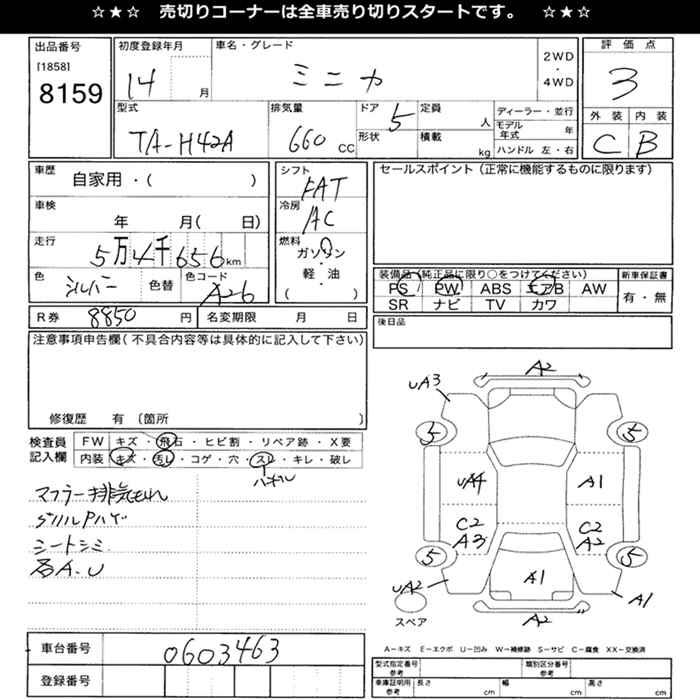 ☆★☆ 売切りコーナーは全車売り切りスタートです。 ☆★☆
出品番号
[1858]
8159
初度登録年月
14 月
車名・グレード
ミニカ
2WD
・
4WD
評価点
3
型式
TA-H42A
排気量
660 CC
ドア 5
形状
定員 人
積載 kg
ディーラー・並行
モデル年式 年
ハンドル 左・右
外装 内装
C B
車歴
自家用・( )
シフト
FAT
セールスポイント(正常に機能するものに限ります)
車検
年 月( 日)
冷房
AC
走行
5万4千656km
燃料
ガソリン
・
軽・油
( )
色
シルバー
色替
色コード
A26
装備品(純正品に限り○をつけてください)
PS PW ABS エアB AW
SR ナビ TV カワ
新車保証書
有・無
R券 8850 円
名変期限 月 日
後日品
注意事項申告欄(不具合内容等は具体的に記入して下さい)
修復歴 有〔箇所 〕
検査員
記入欄
FW キズ・飛石・ヒビ割・リペア跡・X要
内装 キズ・汚レ・コゲ・穴・スレ・キレ・破レ
マフラー排気もれ
シートシミ
各A.U
A2
UA3
5 5
UA4 A1
C2 C2
A3 A2
5 5
A1
UA2 A1
スペア
A2
A-キズ E-エクボ U-凹み W-補修跡 S-サビ C-腐食 XX-交換済
車台番号
0603463
登録番号
型式指定番号
参考
類別区分番号
参考
車庫証明用
参考
長さ cm
幅 cm
高さ cm